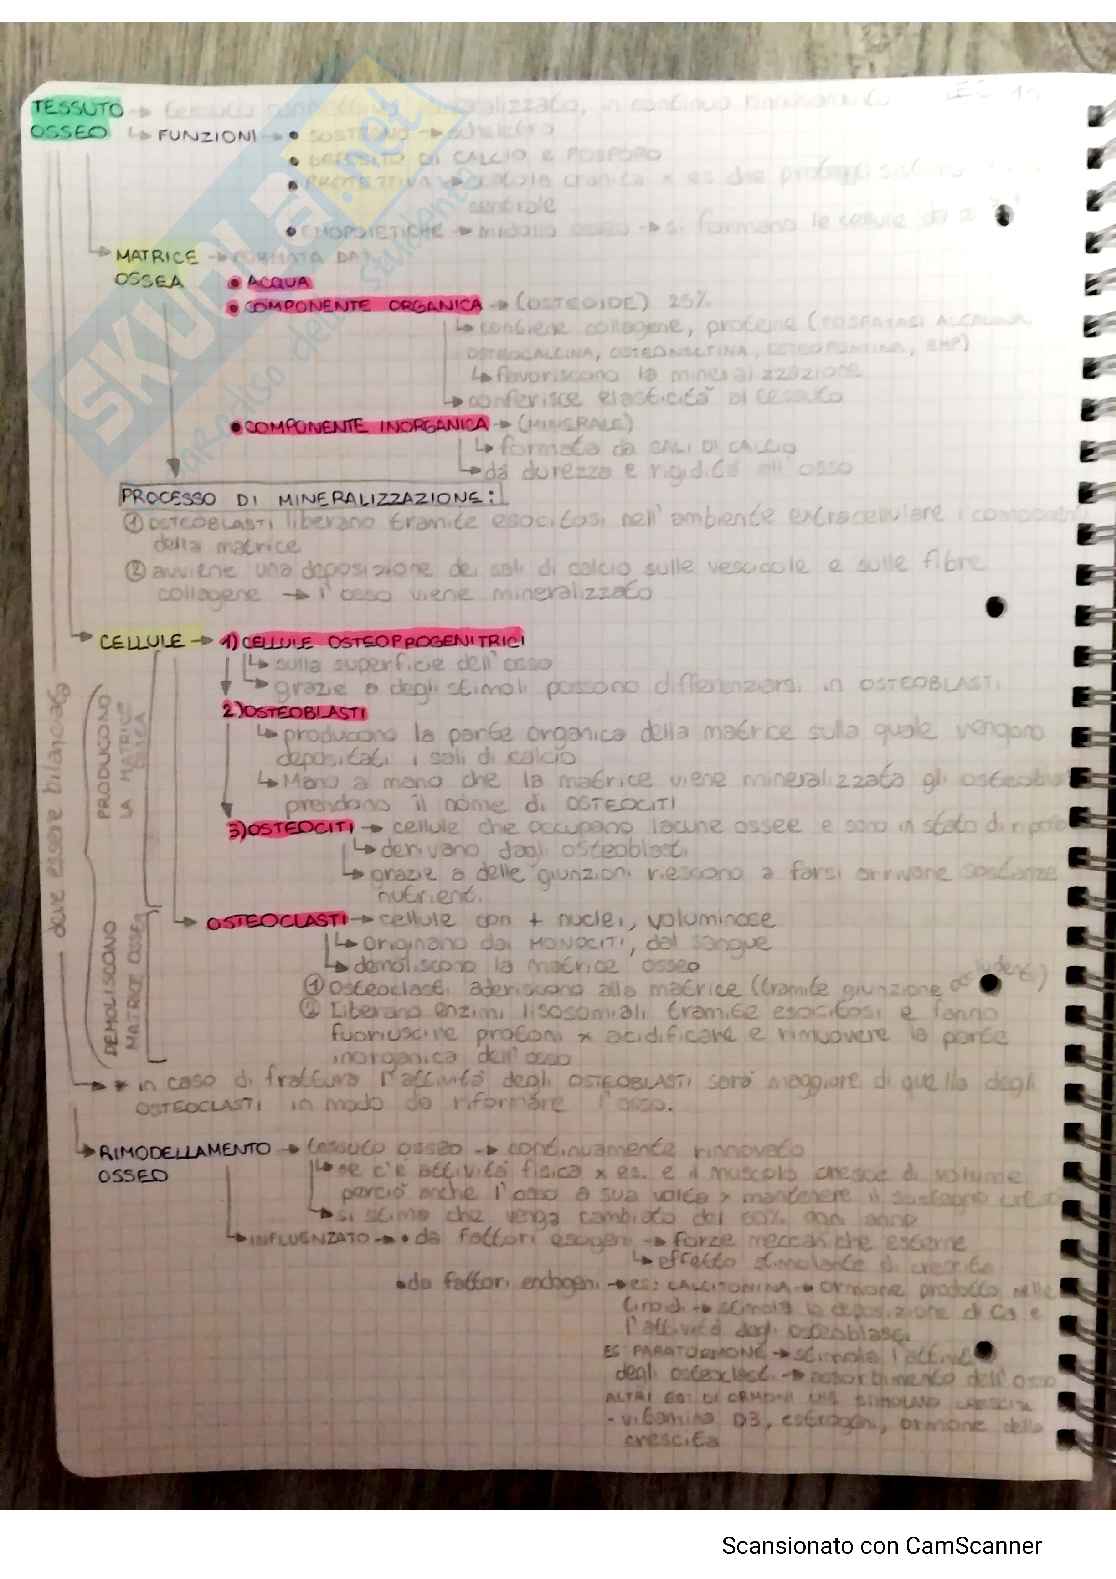 TESSUTO → tessuto connettivo mineralizzato, in continuo
OSSEO ↳ FUNZIONI → • SOSTEGNO → scheletro
• DEPOSITO DI CALCIO E FOSFORO
• PROTETTIVA → scatola cranica x es che protegge sistema
centrale
• EMOPOIETICHE → midollo osseo → si formano le cellule da
MATRICE → FORMATA DA:
OSSEA • ACQUA
• COMPONENTE ORGANICA → (OSTEOIDE) 25%
↳ contiene collagene, proteine (FOSFATASI ALCALINA,
OSTEOCALCINA, OSTEONECTINA, OSTEOPONTINA, BMP)
↳ favoriscono la mineralizzazione
↳ conferisce elasticità al tessuto
• COMPONENTE INORGANICA → (MINERALE)
↳ formata da SALI DI CALCIO
↳ dà durezza e rigidità all'osso
PROCESSO DI MINERALIZZAZIONE:
① OSTEOBLASTI liberano tramite esocitosi nell'ambiente extracellulare i
della matrice
② avviene una deposizione dei sali di calcio sulle vescicole e sulle fibre
collagene → l'osso viene mineralizzato
CELLULE → 1) CELLULE OSTEOPROGENITRICI
↳ sulla superficie dell'osso
↳ grazie a degli stimoli possono differenziarsi in OSTEOBLASTI
2) OSTEOBLASTI
↳ producono la parte organica della matrice sulla quale vengono
depositati i sali di calcio
↳ Mano a mano che la matrice viene mineralizzata gli
prendono il nome di OSTEOCITI
3) OSTEOCITI → cellule che occupano lacune ossee e sono in stato di riposo
↳ derivano dagli osteoblasti
↳ grazie a delle giunzioni riescono a farsi arrivare sostanze
nutrienti
OSTEOCLASTI → cellule con + nuclei, voluminose
↳ originano dai MONOCITI, dal sangue
↳ demoliscono la matrice ossea
① Osteoclasti aderiscono alla matrice (tramite giunzione
② Liberano enzimi lisosomiali tramite esocitosi e fanno
fuoriuscire protoni x acidificare e rimuovere la parte
inorganica dell'osso
deve essere bilanciato
PRODUCONO
LA MATRICE
OSSEA
DEMOLISCONO
MATRICE OSSEA
* in caso di frattura l'attività degli OSTEOBLASTI sarà maggiore di quella degli
OSTEOCLASTI in modo da riformare l'osso.
RIMODELLAMENTO → tessuto osseo → continuamente rinnovato
OSSEO ↳ se c'è attività fisica x es. e il muscolo cresce di volume
perciò anche l'osso a sua volta x mantenere il sostegno
↳ si stima che venga cambiato del ogni anno
↳ INFLUENZATO → • da fattori esogeni → forze meccaniche esterne
↳ effetto stimolante di crescita
• da fattori endogeni → es: CALCITONINA → ormone prodotto nelle
tiroidi → stimola la deposizione di Ca e
l'attività degli osteoblasti
ES PARATORMONE → stimola
degli osteoclasti → assorbimento dell'osso
ALTRI ES: DI ORMONI CHE STIMOLANO CRESCITA
- vitamina D3, estrogeni, ormone della
crescita
SKUOLA.net
Scansionato con CamScanner